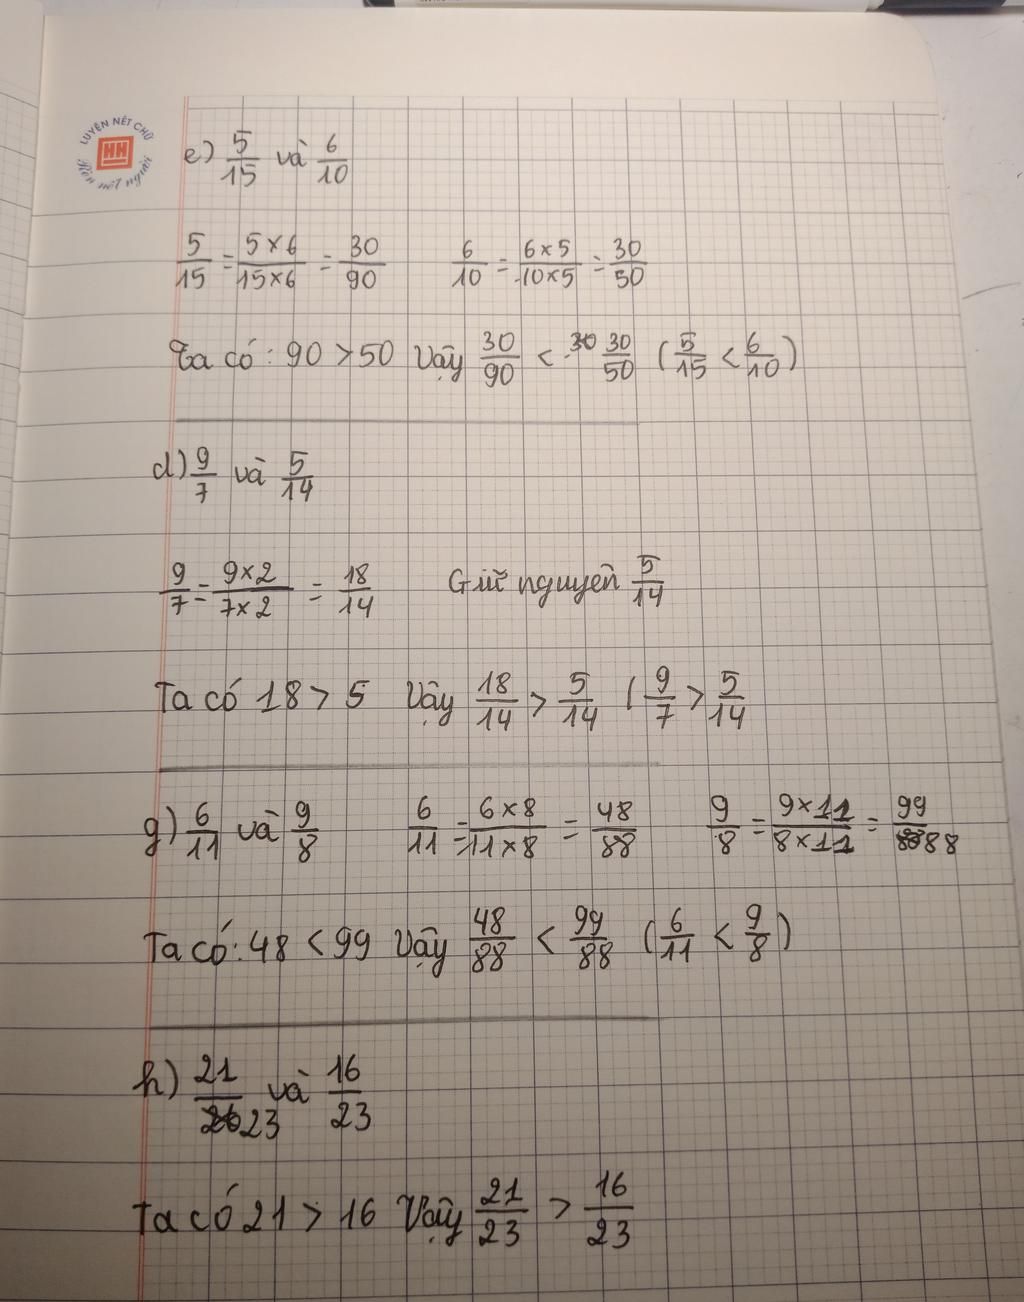 LUYỆN NÉT CHỮ
HH
Rèn nết người
e) 5/15 và 6/10
5/15 = 5×6/15×6 = 30/90 6/10 = 6×5/10×5 = 30/50
Ta có: 90 > 50 Vậy 30/90 < 30/50 (5/15 < 6/10)
d) 9/7 và 5/14
9/7 = 9×2/7×2 = 18/14 Giữ nguyên 5/14
Ta có 18 > 5 Vậy 18/14 > 5/14 (9/7 > 5/14
g) 6/11 và 9/8 6/11 = 6×8/11×8 = 48/88 9/8 = 9×11/8×11 = 99/88
Ta có: 48 < 99 Vậy 48/88 < 99/88 (6/11 < 9/8)
h) 21/23 và 16/23
Ta có 21 > 16 Vậy 21/23 > 16/23